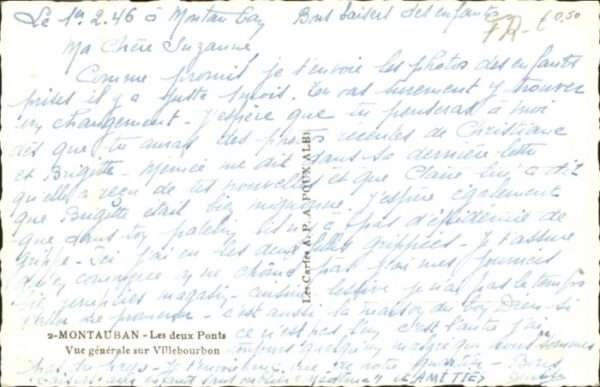 Le 1er. 2.46 à Montauban Bons baisers des enfants
FR- £ 0,50
Ma Chère Suzanne,
Comme promis, je t'envoie les photos des enfants
prises il y a juste mois. Tu vas surement y trouver
un changement - J'espère que tu penseras à moi
dès que tu auras des photos recentes de Christiane
et Brigitte - me dit dans sa dernière lettre
qu'elle a reçu de tes nouvelles et que Claire lui a dit
que Brigitte était bien mignonne. J'espère également
que dans ton patelin il n'y a pas d'épidémie de
grippe - Ici j'ai eu les deux filles grippées - Je t'assure
qu'en commerce on ne chôme pas j'ai mes journées
magasin - cuisine - lessive je n'ai pas le temps
- c'est aussi la maison du bon Dieu. Si
ce n'est pas l'un c'est l'autre j'ai
toujours quelqu'un malgré que nous sommes
Les Cartes A. P. A. POUX ALBI
2-MONTAUBAN - Les deux Ponts
Vue générale sur Villebourbon